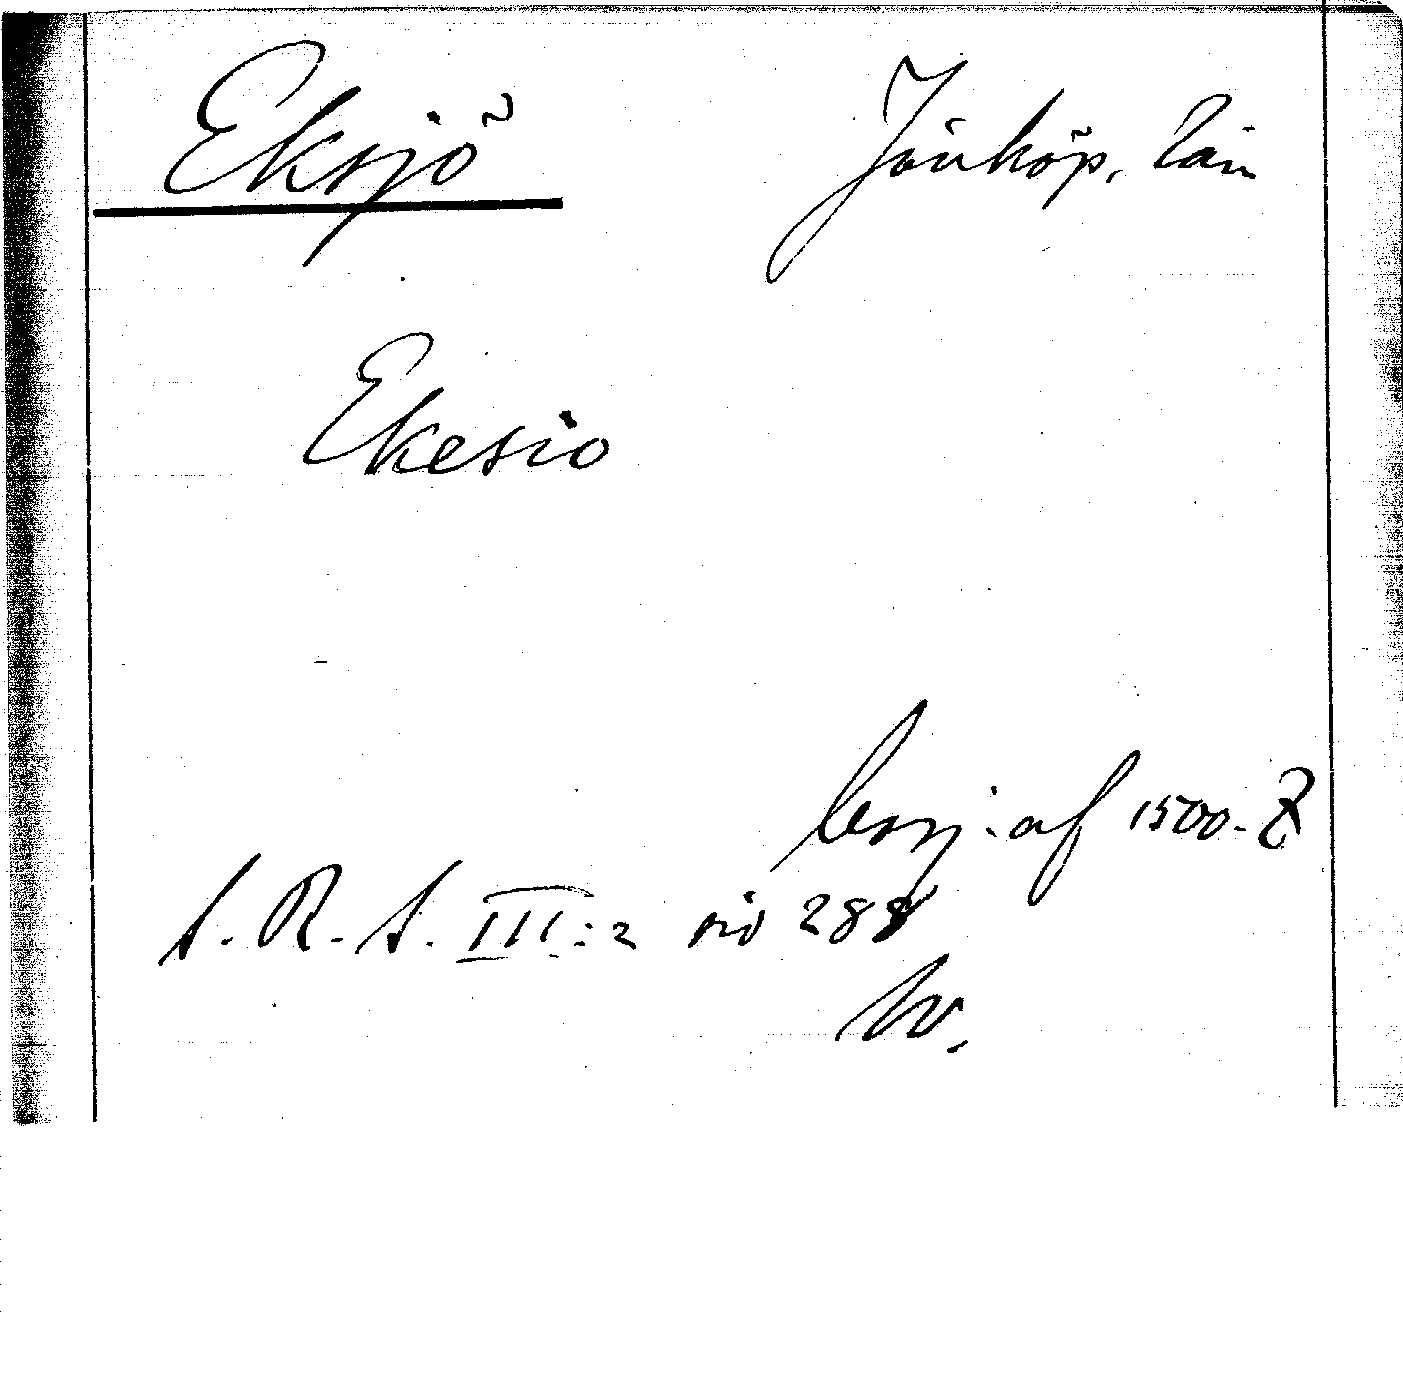 Eksjö Jönköp. län
Ekesio
börj. af 1500-t
S. R. S. III:2 sid 288
W.